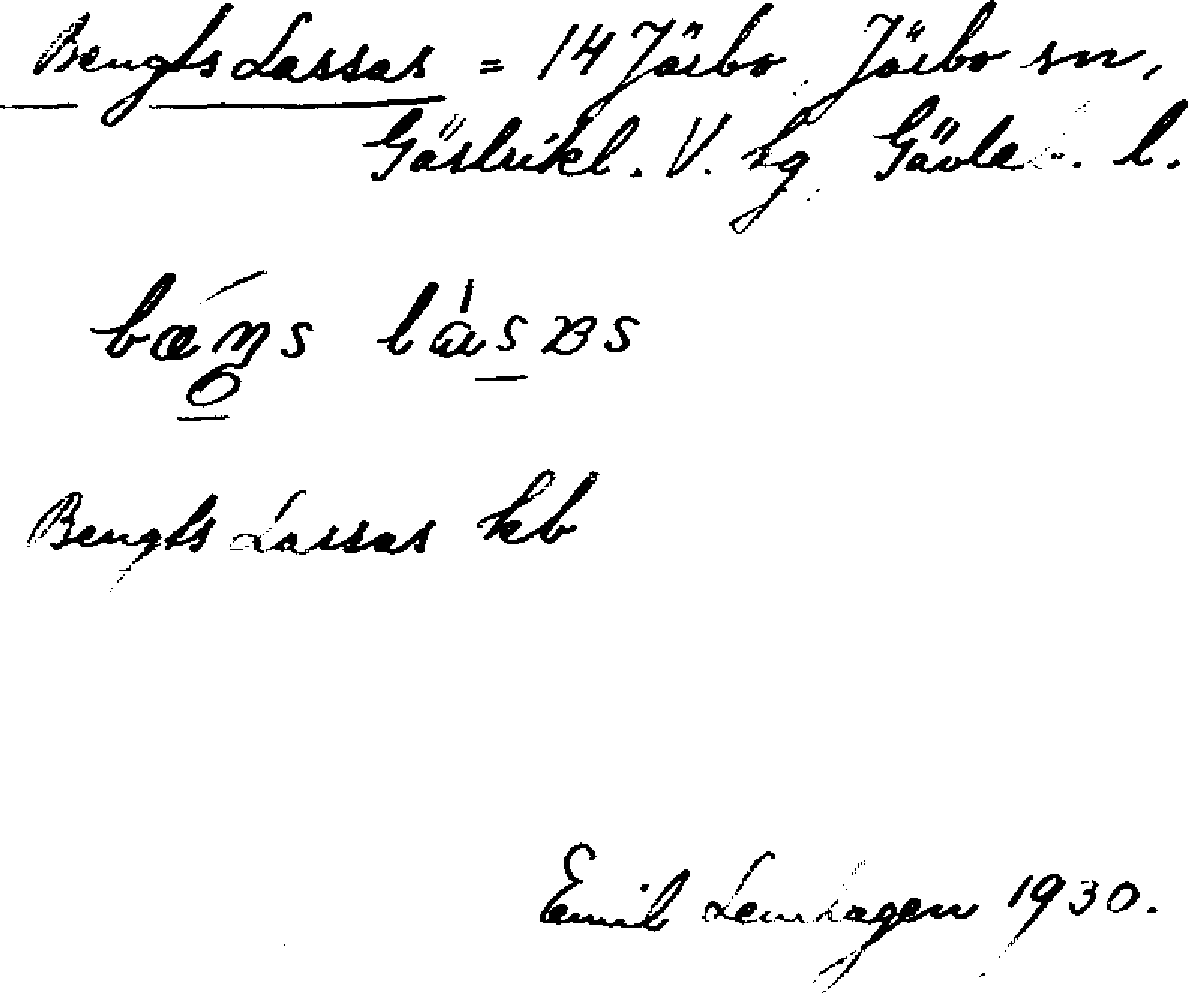 Bengts Lassas = 14 Järbo Järbo sn,
Gästrikl. V. hg Gävle l.
Bengts Lassas kb
Emil Lenhagen 1930.